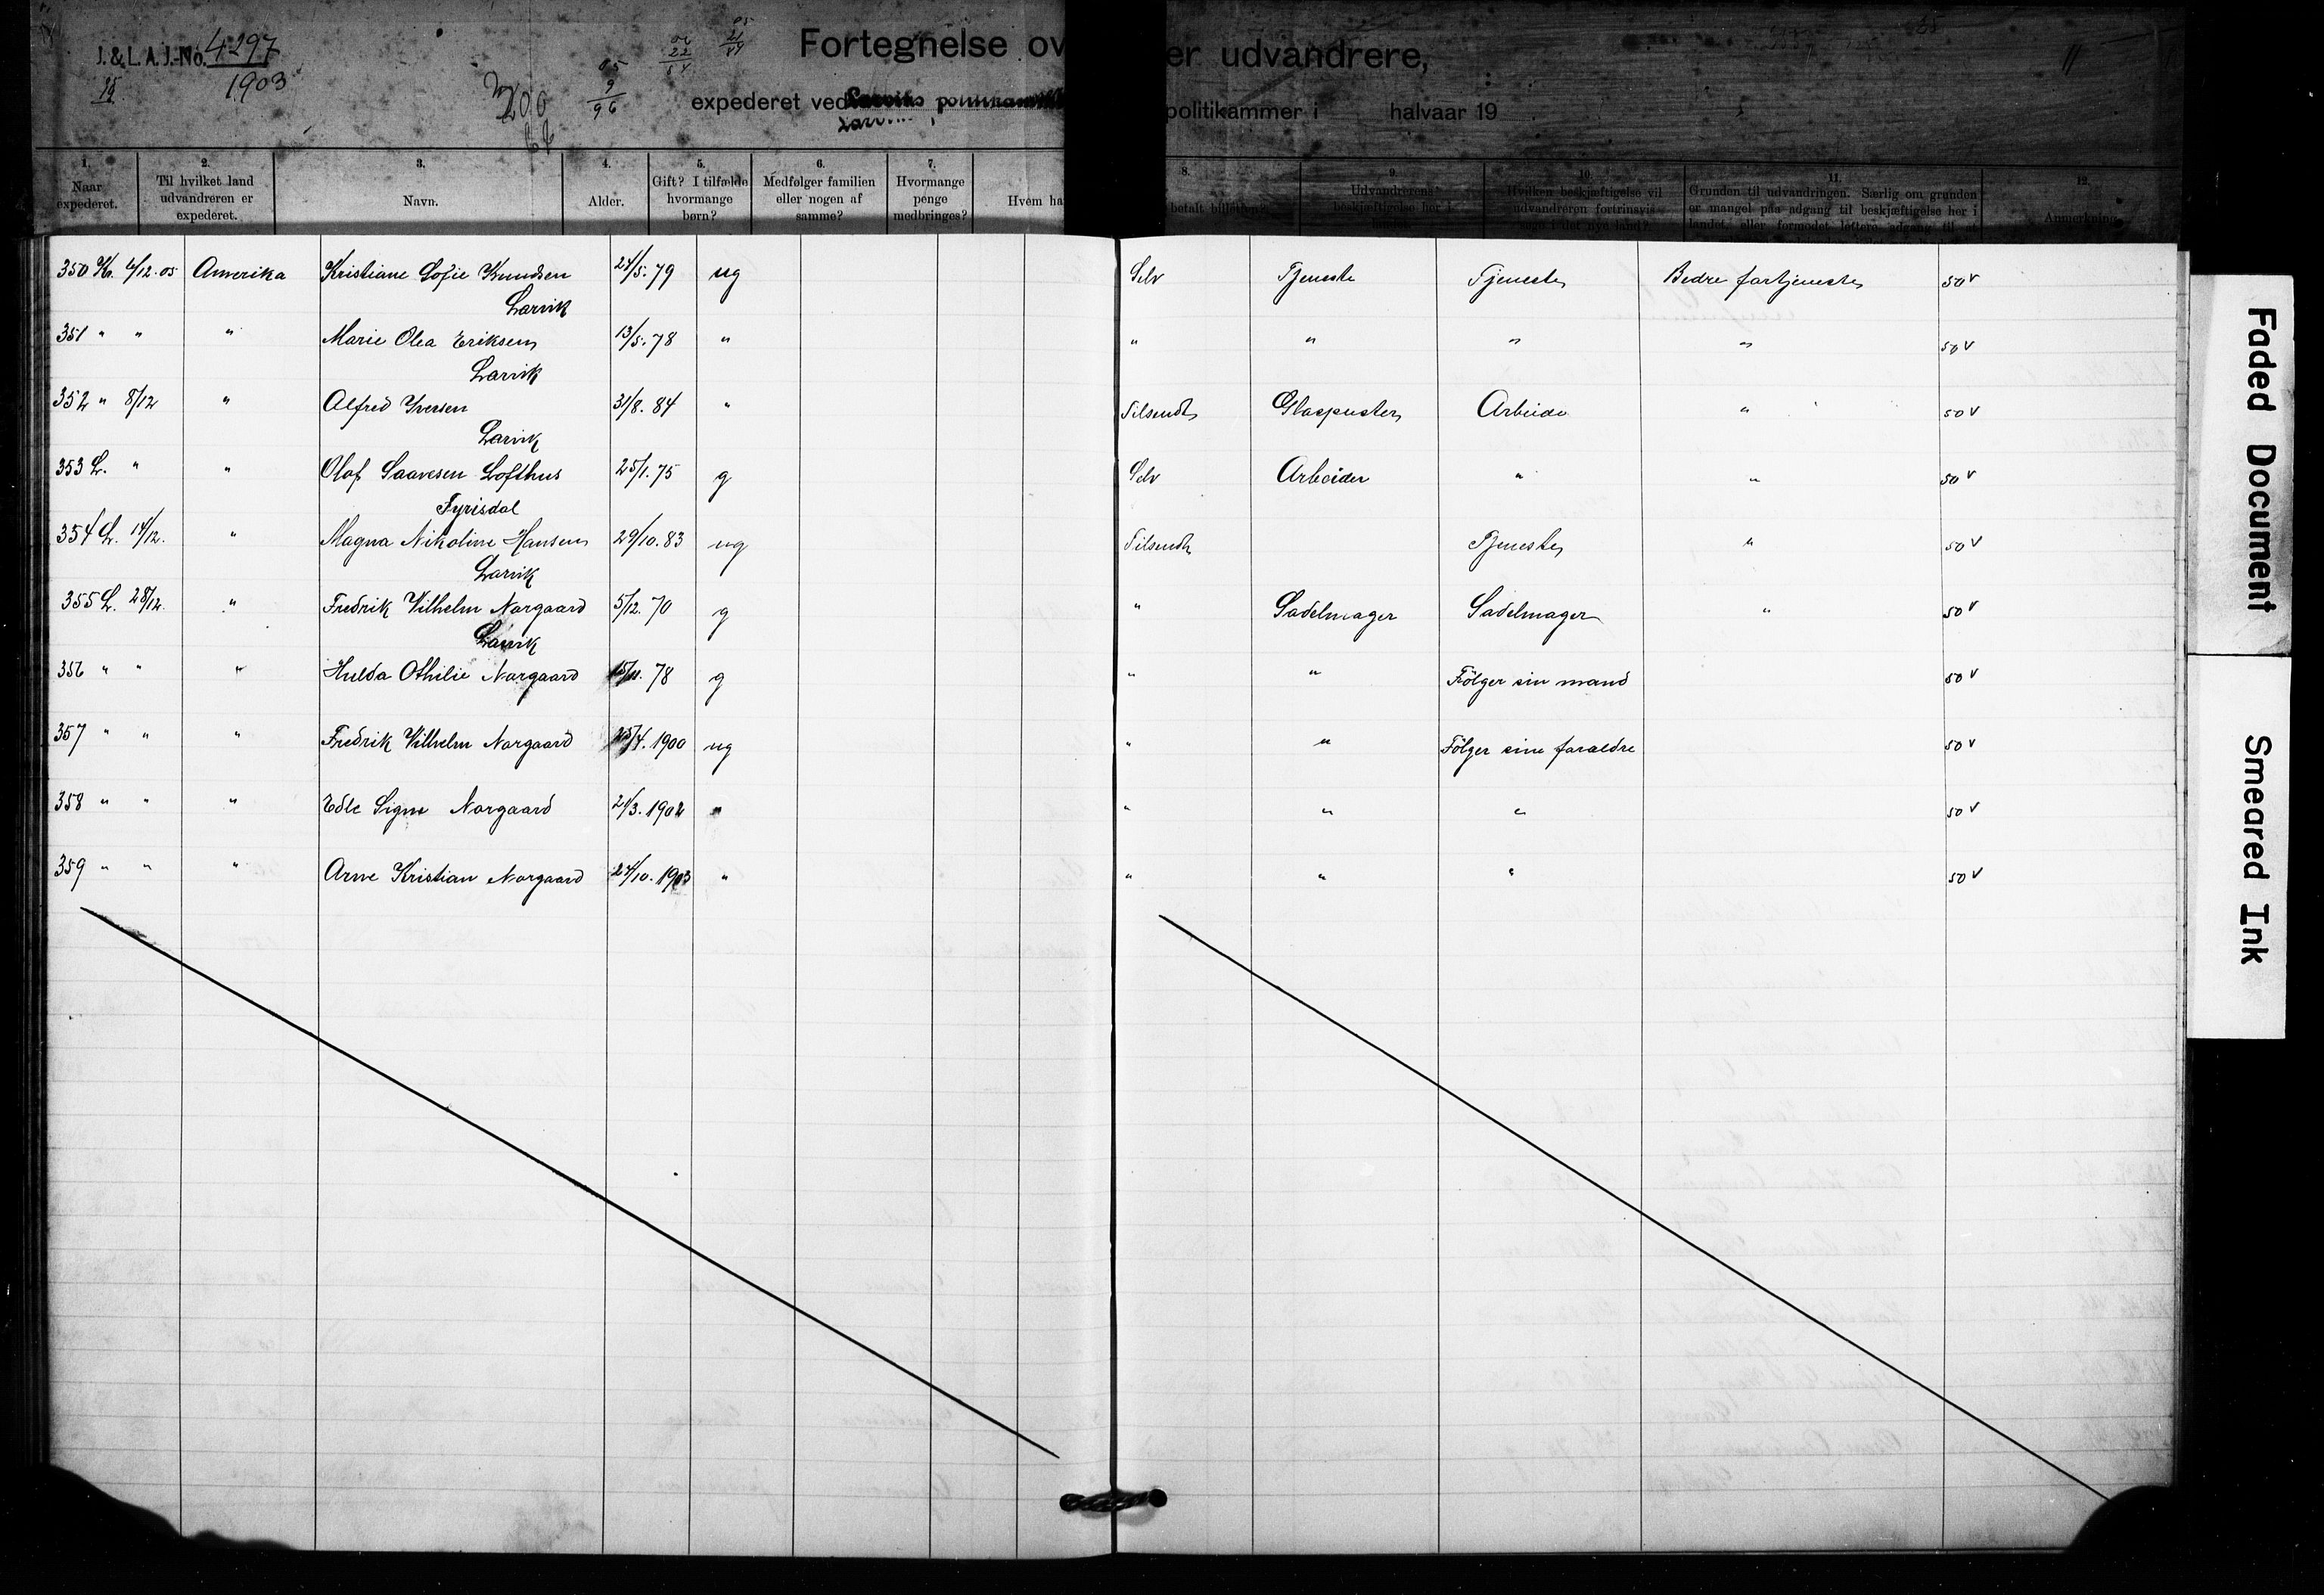 J. & L. A. J.-No. 4297
1903
Fortegnelse ov er udvandrere,
expederet ved politikammer i halvaar 19
1. Naar expederet.
2. Til hvilket land udvandreren er expederet.
3. Navn.
4. Alder.
5. Gift? I tilfælde hvormange børn?
6. Medfølger familien eller nogen af samme?
7. Hvormange penge medbringes?
Hvem ha
8. betalt billetten?
9. Udvandrerens beskjæftigelse her i
10. Hvilken beskjæftigelse vil udvandreren fortrinsvis søge i det nye land?
11. Grunden til udvandringen. Særlig om grunden er mangel paa adgang til beskjæftigelse her i landet, eller formodet lettere adgang til at
12. Anmerkning
350 Kr. 6/12.05 Amerika Kristiane Sofie Knudsen 21/5.79 ug Selv Tjeneste Tjeneste Bedre fortjeneste 50 v
Larvik
351 " " " Marie Olea Eriksen 13/5.78 " " " " " 50 v
Larvik
352 " 8/12 " Alfred Iversen 31/8.84 " Tilsendt Glaspuster Arbeide " 50 v
Larvik
353 L. " " Olaf Saavesen Lofthus 25/1.75 g Selv Arbeider " " 50 v
Fyrisdal
354 L. 14/12. " Magna Nikoline Hansen 29/10.83 ug Tilsendt Tjeneste " 50 v
Larvik
355 L. 28/12. " Fredrik Vilhelm Norgaard 5/12.70 g " Sadelmager Sadelmager " 50 v
Larvik
356 " " " Hulda Othilie Norgaard 15/11.78 g " " Følger sin mand 50 v
357 " " " Fredrik Vilhelm Norgaard 25/4.1900 ug " " Følger sine foraldre 50 v
358 " " " Edle Signe Norgaard 21/3.1902 " " " " 50 v
359 " " " Arne Kristian Norgaard 24/10.1903 " " " " 50 v
Faded Document
Smeared Ink